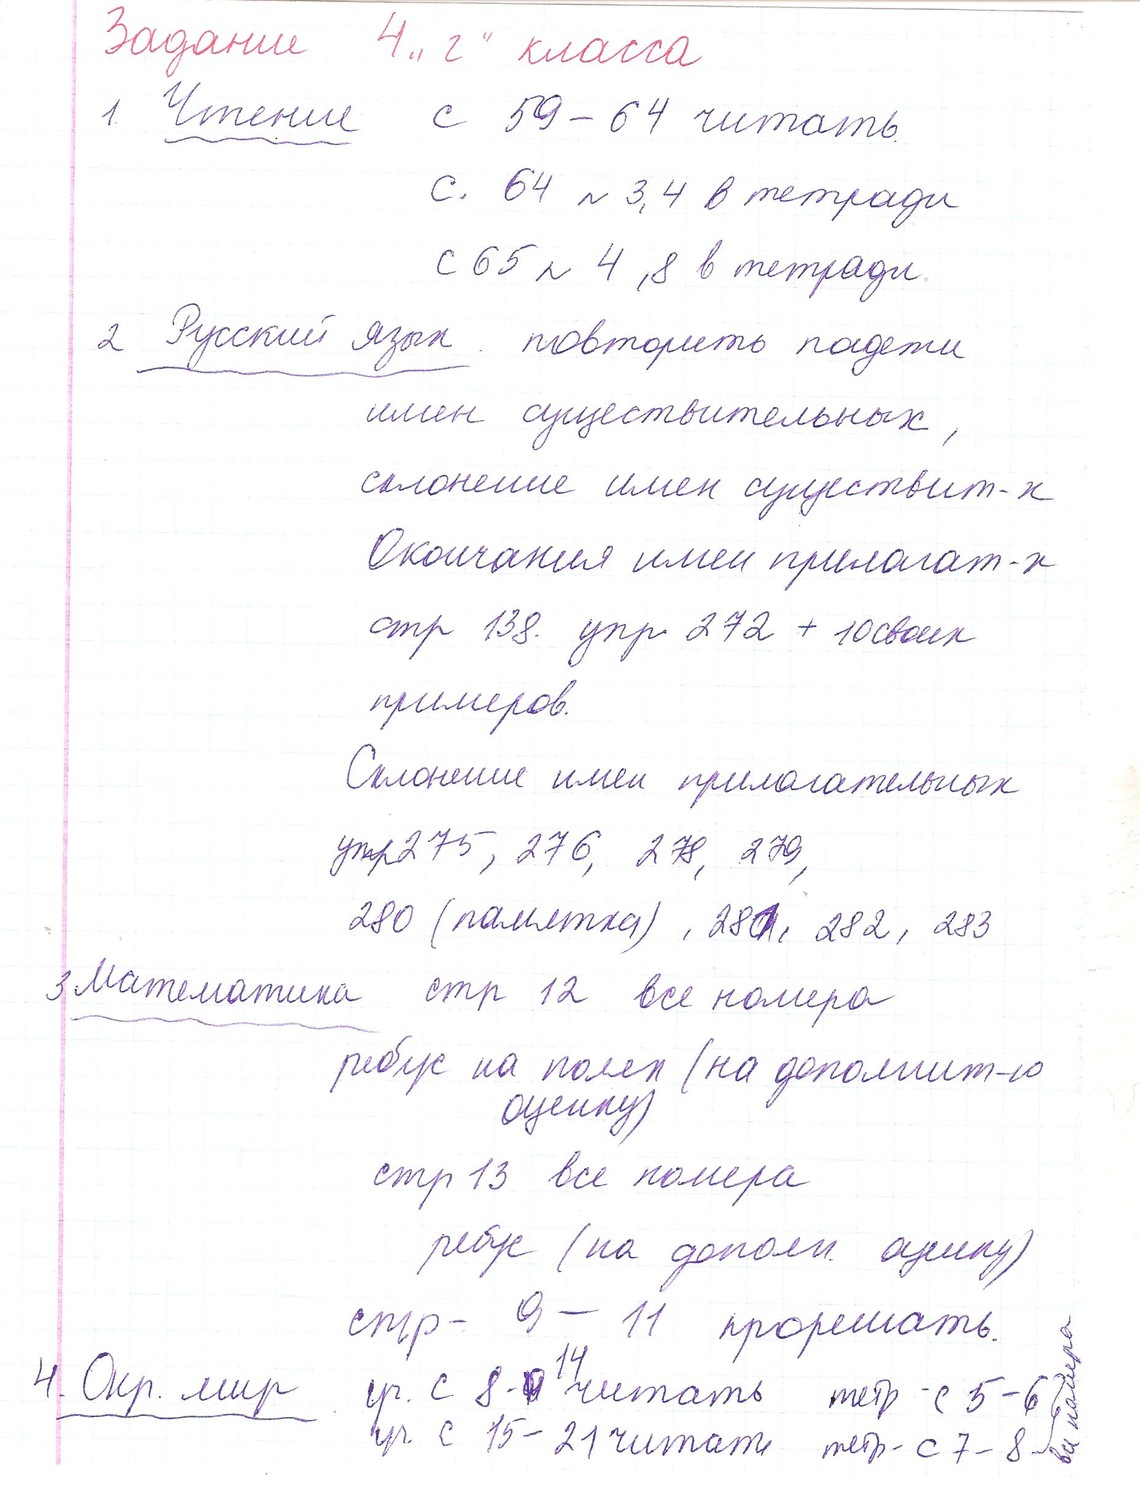 Задание 4 „г" класса
1. Чтение с 59 – 64 читать
с. 64 № 3,4 в тетради
с 65 № 4,8 в тетради.
2 Русский язык. повторить падежи
имен существительных,
склонение имен существит-х
Окончания имен прилагат-х
стр 138. упр. 272 + 10 своих
примеров.
Склонение имен прилагательных
упр 275, 276, 278, 279,
280 (памятка), 281, 282, 283
3 Математика стр 12 все номера
ребус на полях (на дополнит-ю
оценку)
стр 13 все номера
ребус (на дополн. оценку)
стр - 9 – 11 прорешать.
4. Окр. мир уч. с 8 - 14 читать тетр - с 5 – 6
уч. с 15 – 21 читать тетр - с 7 – 8
все номера